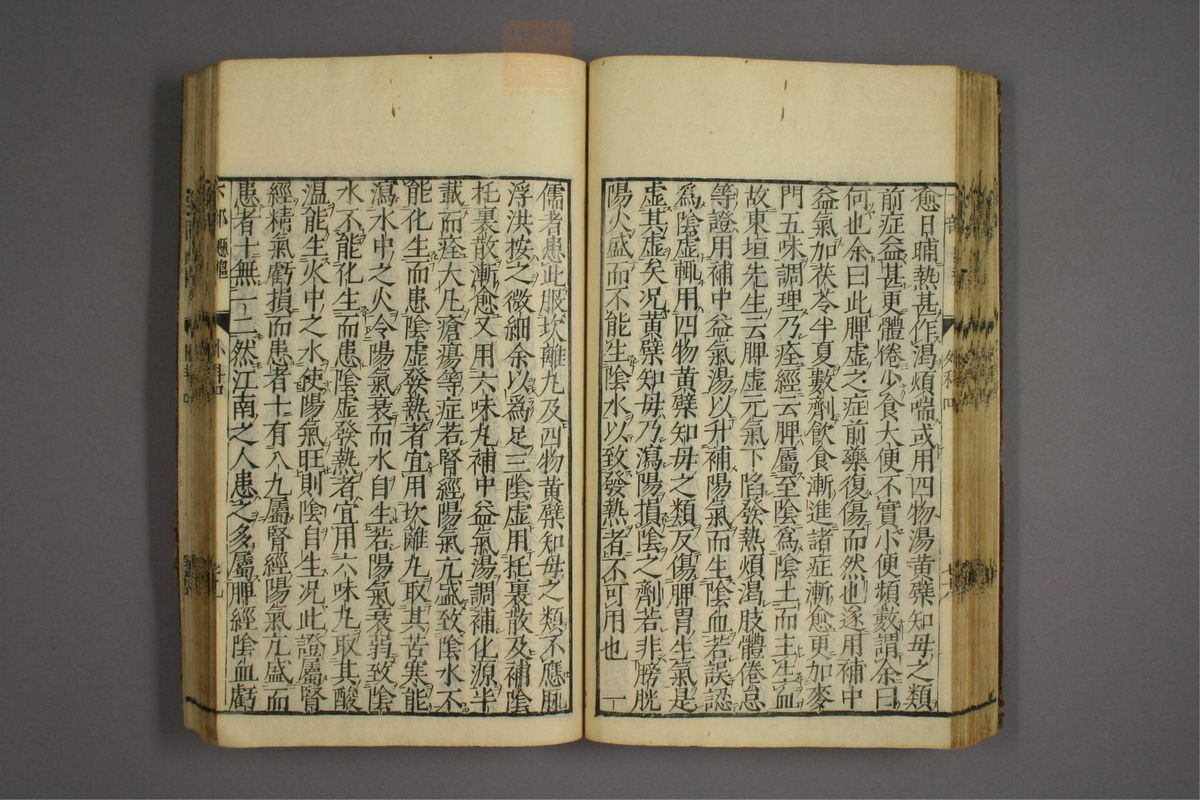 愈日晡熱甚作渴煩喘或用四物湯黄蘗知母之類
前症益甚更體倦少食大便不實小便頻數謂余曰
何也余曰此脾虚之症前藥復傷而然也遂用補中
益氣加茯苓半夏數劑飲食漸進諸症漸愈更加麥
門五味調理乃痊經云脾屬至陰爲陰土而主生血
故東垣先生云脾虚元氣下陷發熱煩渴肢體倦怠
等證用補中益氣湯以升補陽氣而生陰血若誤認
爲陰虚輙用四物黄蘗知母之類反傷脾胃生氣是
虚其虚矣况黄蘗知母乃瀉陽損陰之劑若非膀胱
陽火盛而不能生陰水以致發熱者不可用也 一
儒者患此服坎離丸及四物黄蘗知母之類不應脉
浮洪按之微細余以爲足三陰虚用托裏散及補陰
托裏散漸愈又用六味丸補中益氣湯調補化源半
載而痊大凡瘡瘍等症若腎經陽氣亢盛致陰水不
能化生而患陰虚發熱者宜用坎離丸取其苦寒能
瀉水中之火令陽氣衰而水自生若陽氣衰弱致陰
水不能化生而患陰虚發熱者宜用六味丸取其酸
温能生火中之水使陽氣旺則陰自生况此證屬腎
經精氣虧損而患者十有八九屬腎經陽氣亢盛而
患者十無一二然江南之人患之多屬脾經陰血虧